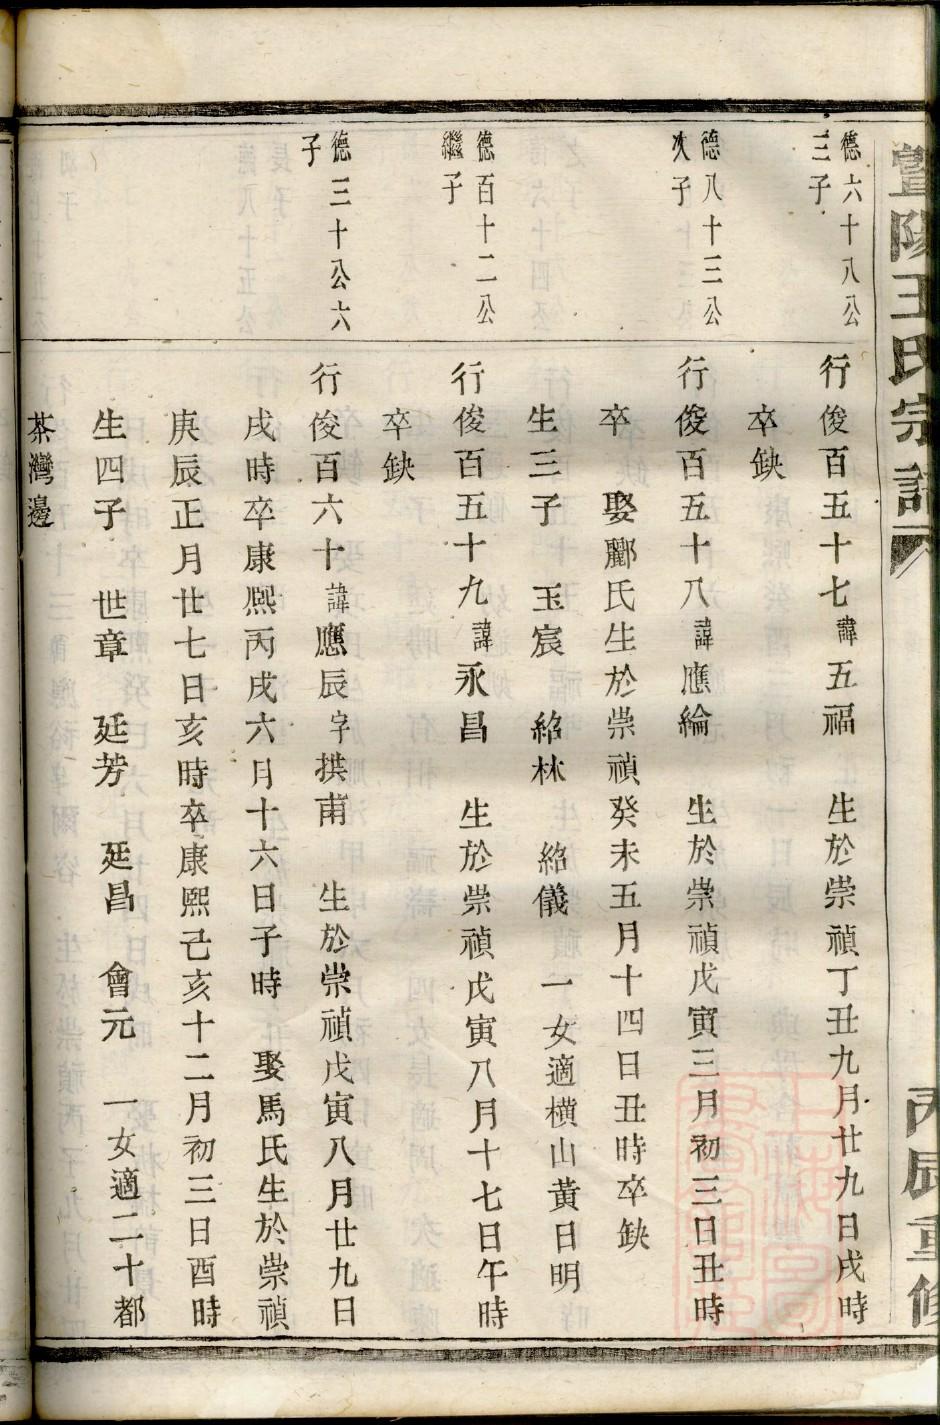 暨陽王氏宗譜
丙辰重修
德六十八公
三子
行俊百五十七諱五福 生於崇禎丁丑九月廿九日戌時
卒缺
德八十三公
次子
行俊百五十八諱應綸 生於崇禎戊寅三月初三日丑時
卒 娶酈氏生於崇禎癸未五月十四日丑時卒缺
生三子 玉宸 紹林 紹儀 一女適橫山黃日明
德百十二公
繼子
行俊百五十九諱永昌 生於崇禎戊寅八月十七日午時
卒缺
德三十公六
子
行俊百六十諱應辰字拱甫 生於崇禎戊寅八月廿九日
戌時卒康熙丙戌六月十六日子時 娶馬氏生於崇禎
庚辰正月廿七日亥時卒康熙己亥十二月初三日酉時
生四子 世章 廷芳 廷昌 會元 一女適二十都
茶灣邊